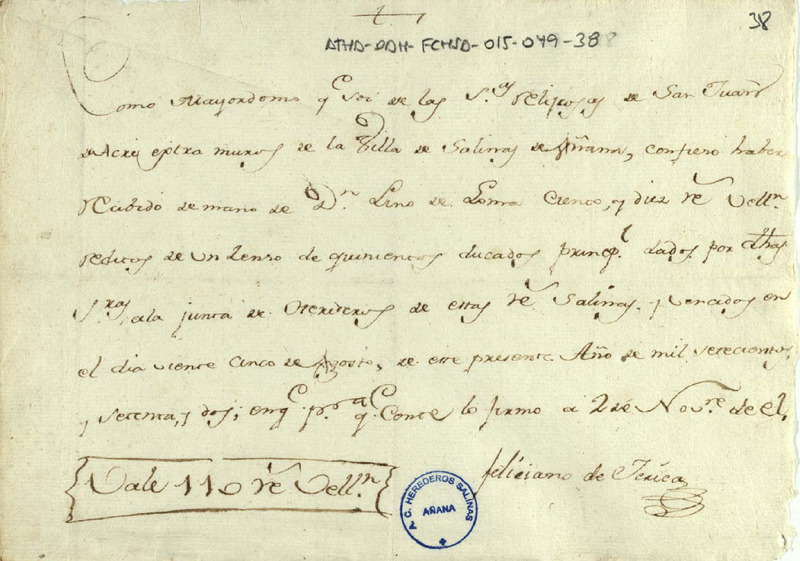 38
ATHA-DAH-FCHSA-015-049-38
Como Mayordomo q.e soi de las S.as relijiosas de San Juan
de Acre extra muros de la Villa de Salinas de Añana, confieso haber
recibido de mano de D.n Lino de Loma Ciento, y diez r.s Vell.n
reditos de un Zenso de quinientos ducados princip.l dados por dhas
S.ras, ala junta de Herederos de estas r.s Salinas, y vencidos en
el dia viente Cinco de Agosto, de este presente Año de mil setecientos,
y setenta, y dos; en q.e p.ra q.e Conste lo firmo a 2 de Nov.re de el,
feliciano de Jerica
Vale 110 r.s Vell.n
A. C. HEREDEROS SALINAS
AÑANA